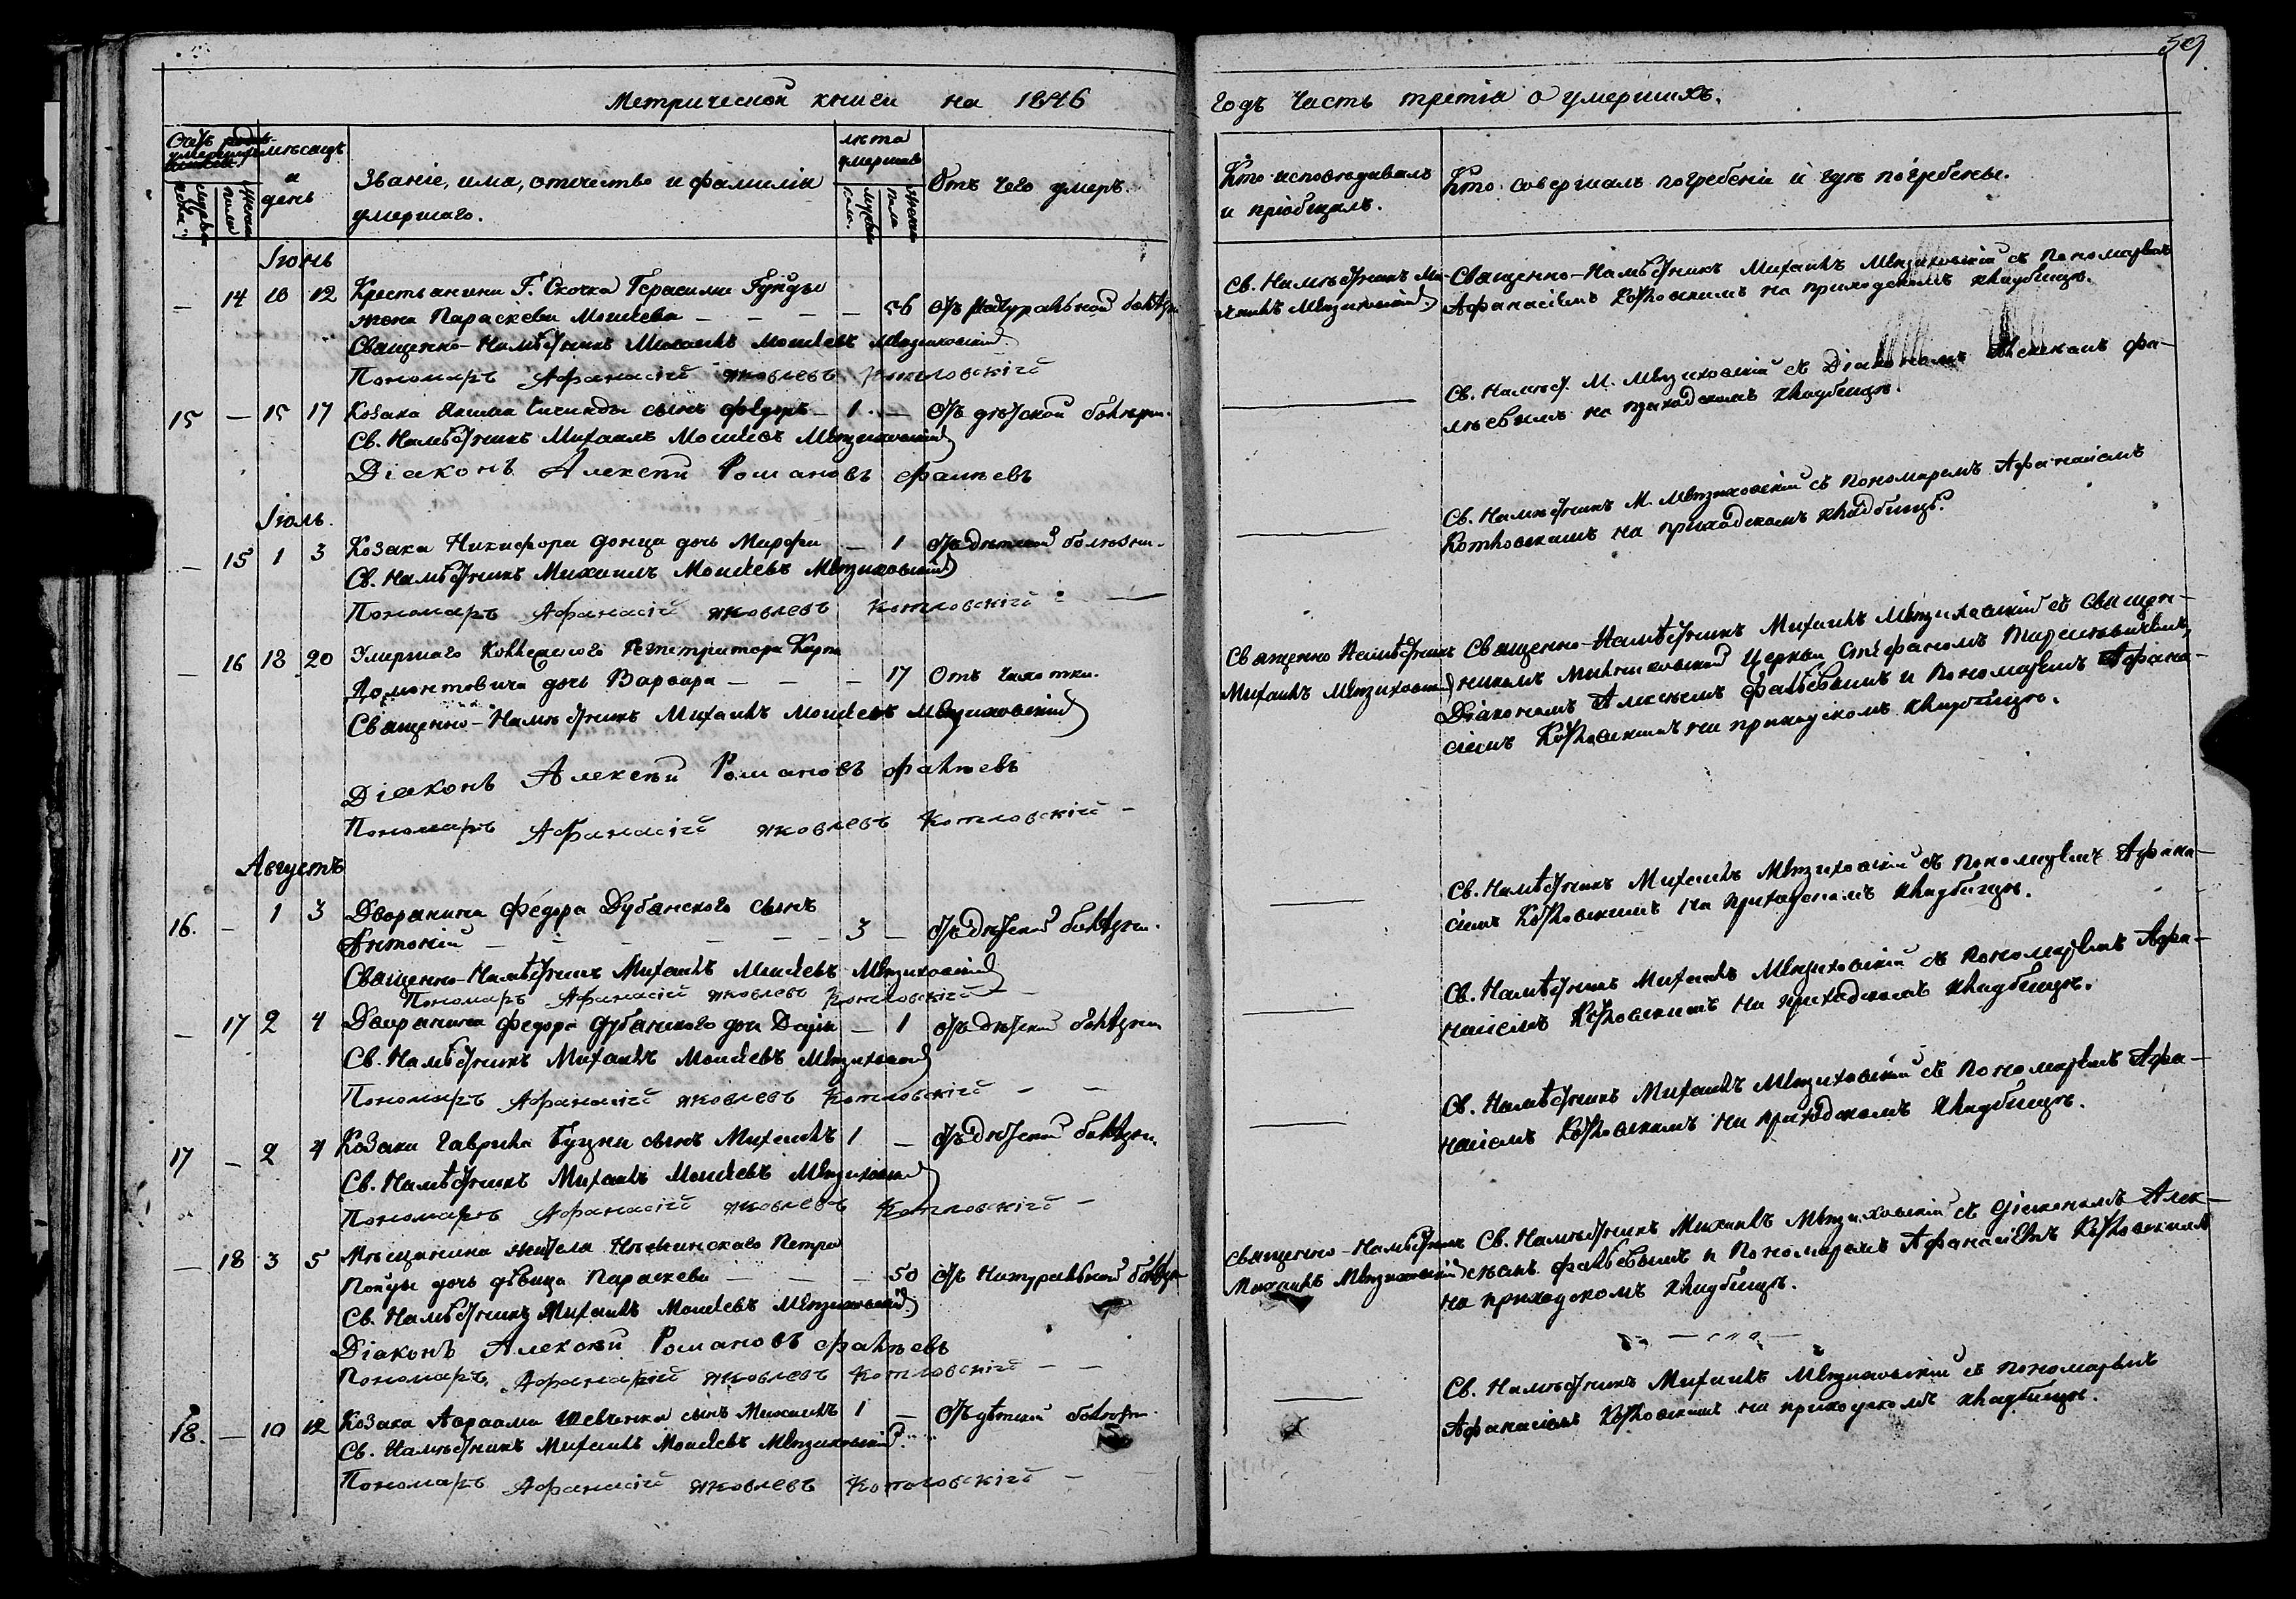 59
Метрической книги на 1846
годъ Часть третіа о умершихъ.
Счетъ
мѣсацъ
и
день
мужеска
пола
женска
Званіе, има, отечество и фамиліа
умершаго.
лѣта
умершаго
мужеска
пола
женска
Отъ чего умеръ.
Кто исповѣдывалъ
и пріобщалъ.
Кто совершалъ погребеніи и гдѣ погребены.
Іюнь
— 14 10 12 Крестьанина Г. Скочка Герасима
жена Параскева Моисѣева — — — — 56 Отъ натуральной болѣзни
Священно-Намѣстникъ Михаилъ Моисѣевъ Мѣзиховскій
Пономаръ Афанасій Яковлевъ Котловскій
Св. Намѣстникъ Ми-
хаилъ Мѣзиховскій
Священно-Намѣстникъ Михаилъ Мѣзиховскій съ Пономаремъ
Афанасіемъ Котловскимъ на приходскомъ кладбищѣ.
15 — 15 17 Козака сынъ Федоръ — 1 — Отъ дѣтской болѣзни.
Св. Намѣстникъ Михаилъ Моисѣевъ Мѣзиховскій
Діаконъ Алексѣй Романовъ Фалѣевъ
Св. Намѣст. М. Мѣзиховскій съ Діакономъ Алексѣемъ Фа-
лѣевымъ на приходскомъ кладбищѣ.
Іюль
— 15 1 3 Козака Никифора Донца дочь Марфа — 1 Отъ дѣтской болѣзни.
Св. Намѣстникъ Михаилъ Моисѣевъ Мѣзиховскій
Пономаръ Афанасій Яковлевъ Котловскій —
Св. Намѣстникъ М. Мѣзиховскій съ Пономаремъ Афанасіемъ
Котловскимъ на приходскомъ кладбищѣ.
— 16 18 20 Умершаго Коллежского Регистратора Карпа
Домонтовича дочь Варвара — — — 17 Отъ чахотки.
Священно-Намѣстникъ Михаилъ Моисѣевъ Мѣзиховскій
Діаконъ Алексѣй Романовъ Фалѣевъ
Пономаръ Афанасій Яковлевъ Котловскій —
Священно Намѣстникъ
Михаилъ Мѣзиховскій
Священно-Намѣстникъ Михаилъ Мѣзиховскій съ Священ-
никомъ Церкви Стефаномъ
Діакономъ Алексѣемъ Фалѣевымъ и Пономаремъ Афана-
сіемъ Котловскимъ на приходскомъ кладбищѣ.
Августъ
16. — 1 3 Дворанина Федора Дубанского сынъ
Антоній — — — — — 3 — Отъ дѣтской болѣзни.
Священно-Намѣстникъ Михаилъ Моисѣевъ Мѣзиховскій
Пономаръ Афанасій Яковлевъ Котловскій —
Св. Намѣстникъ Михаилъ Мѣзиховскій съ Пономаремъ Афана-
сіемъ Котловскимъ на приходскомъ кладбищѣ.
— 17 2 4 Дворанина Федора Дубанского дочь Дарія — 1 Отъ дѣтской болѣзни
Св. Намѣстникъ Михаилъ Моисѣевъ Мѣзиховскій
Пономаръ Афанасій Яковлевъ Котловскій — —
Св. Намѣстникъ Михаилъ Мѣзиховскій съ Пономаремъ Афа-
насіемъ Котловскимъ на приходскомъ кладбищѣ.
17 — 2 4 Козака Гаврила Буцки сынъ Михаилъ 1 — Отъ дѣтской болѣзни.
Св. Намѣстникъ Михаилъ Моисѣевъ Мѣзиховскій
Пономаръ Афанасій Яковлевъ Котловскій —
Св. Намѣстникъ Михаилъ Мѣзиховскій съ Пономаремъ Афа-
насіемъ Котловскимъ на приходскомъ кладбищѣ.
— 18 3 5 Мѣщанина жителя Нѣжинскаго Петра
дочь дѣвица Параскева — — — 50 Отъ Натуральной болѣзни
Св. Намѣстникъ Михаилъ Моисѣевъ Мѣзиховскій
Діаконъ Алексѣй Романовъ Фалѣевъ
Пономаръ Афанасій Яковлевъ Котловскій — —
Священно-Намѣстникъ
Михаилъ Мѣзиховскій
Св. Намѣстникъ Михаилъ Мѣзиховскій съ Діакономъ Алек-
сѣемъ Фалѣевымъ и Пономаремъ Афанасіемъ Котловскимъ
на приходскомъ кладбищѣ.
18. — 10 12 Козака Авраама Шевченка сынъ Михаилъ 1 — Отъ дѣтской болѣзни.
Св. Намѣстникъ Михаилъ Моисѣевъ Мѣзиховскій.
Пономаръ Афанасій Яковлевъ Котловскій —
Св. Намѣстникъ Михаилъ Мѣзиховскій съ Пономаремъ
Афанасіемъ Котловскимъ на приходскомъ кладбищѣ.